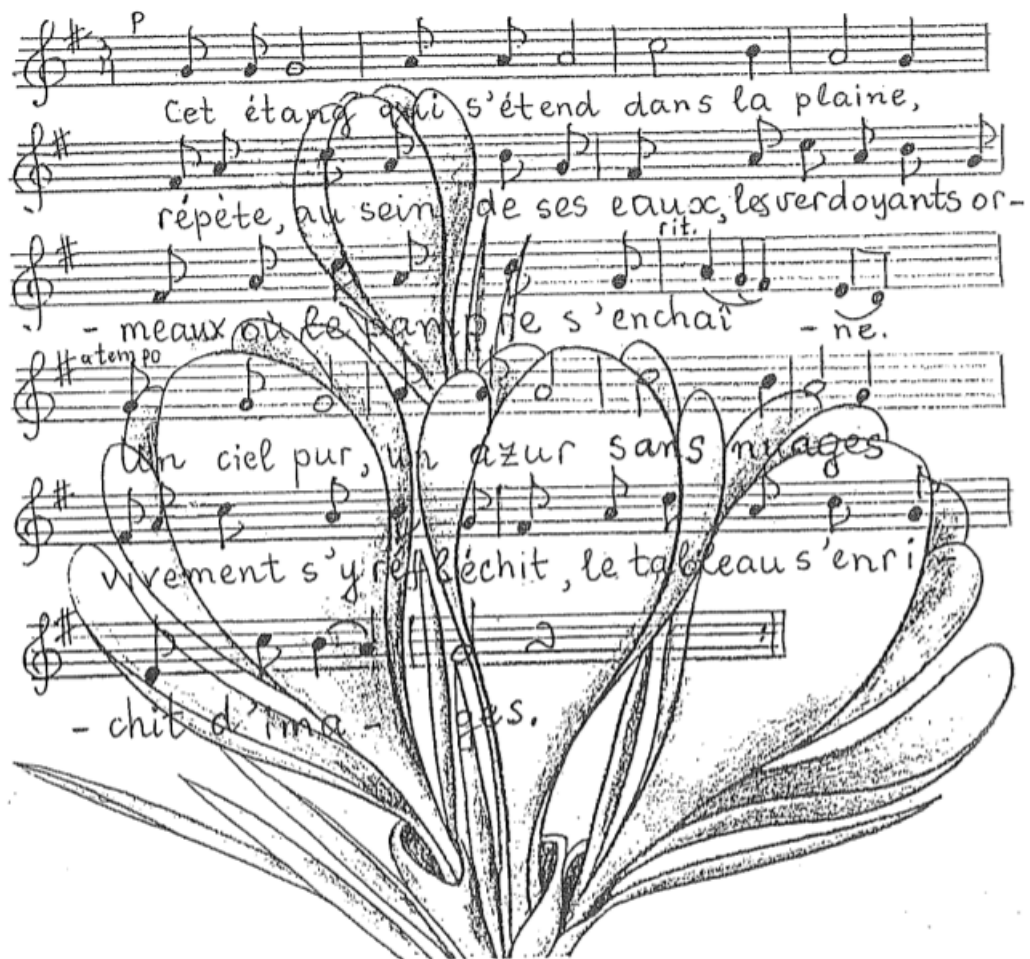 P
Cet étang qui s'étend dans la plaine,
répète, au sein de ses eaux, les verdoyants or-
rit.
- meaux où le pampre s'enchaî - ne.
a tempo
Un ciel pur, un azur sans nuages
vivement s'y réfléchit, le tableau s'enri-
- chit d'ima - ges.